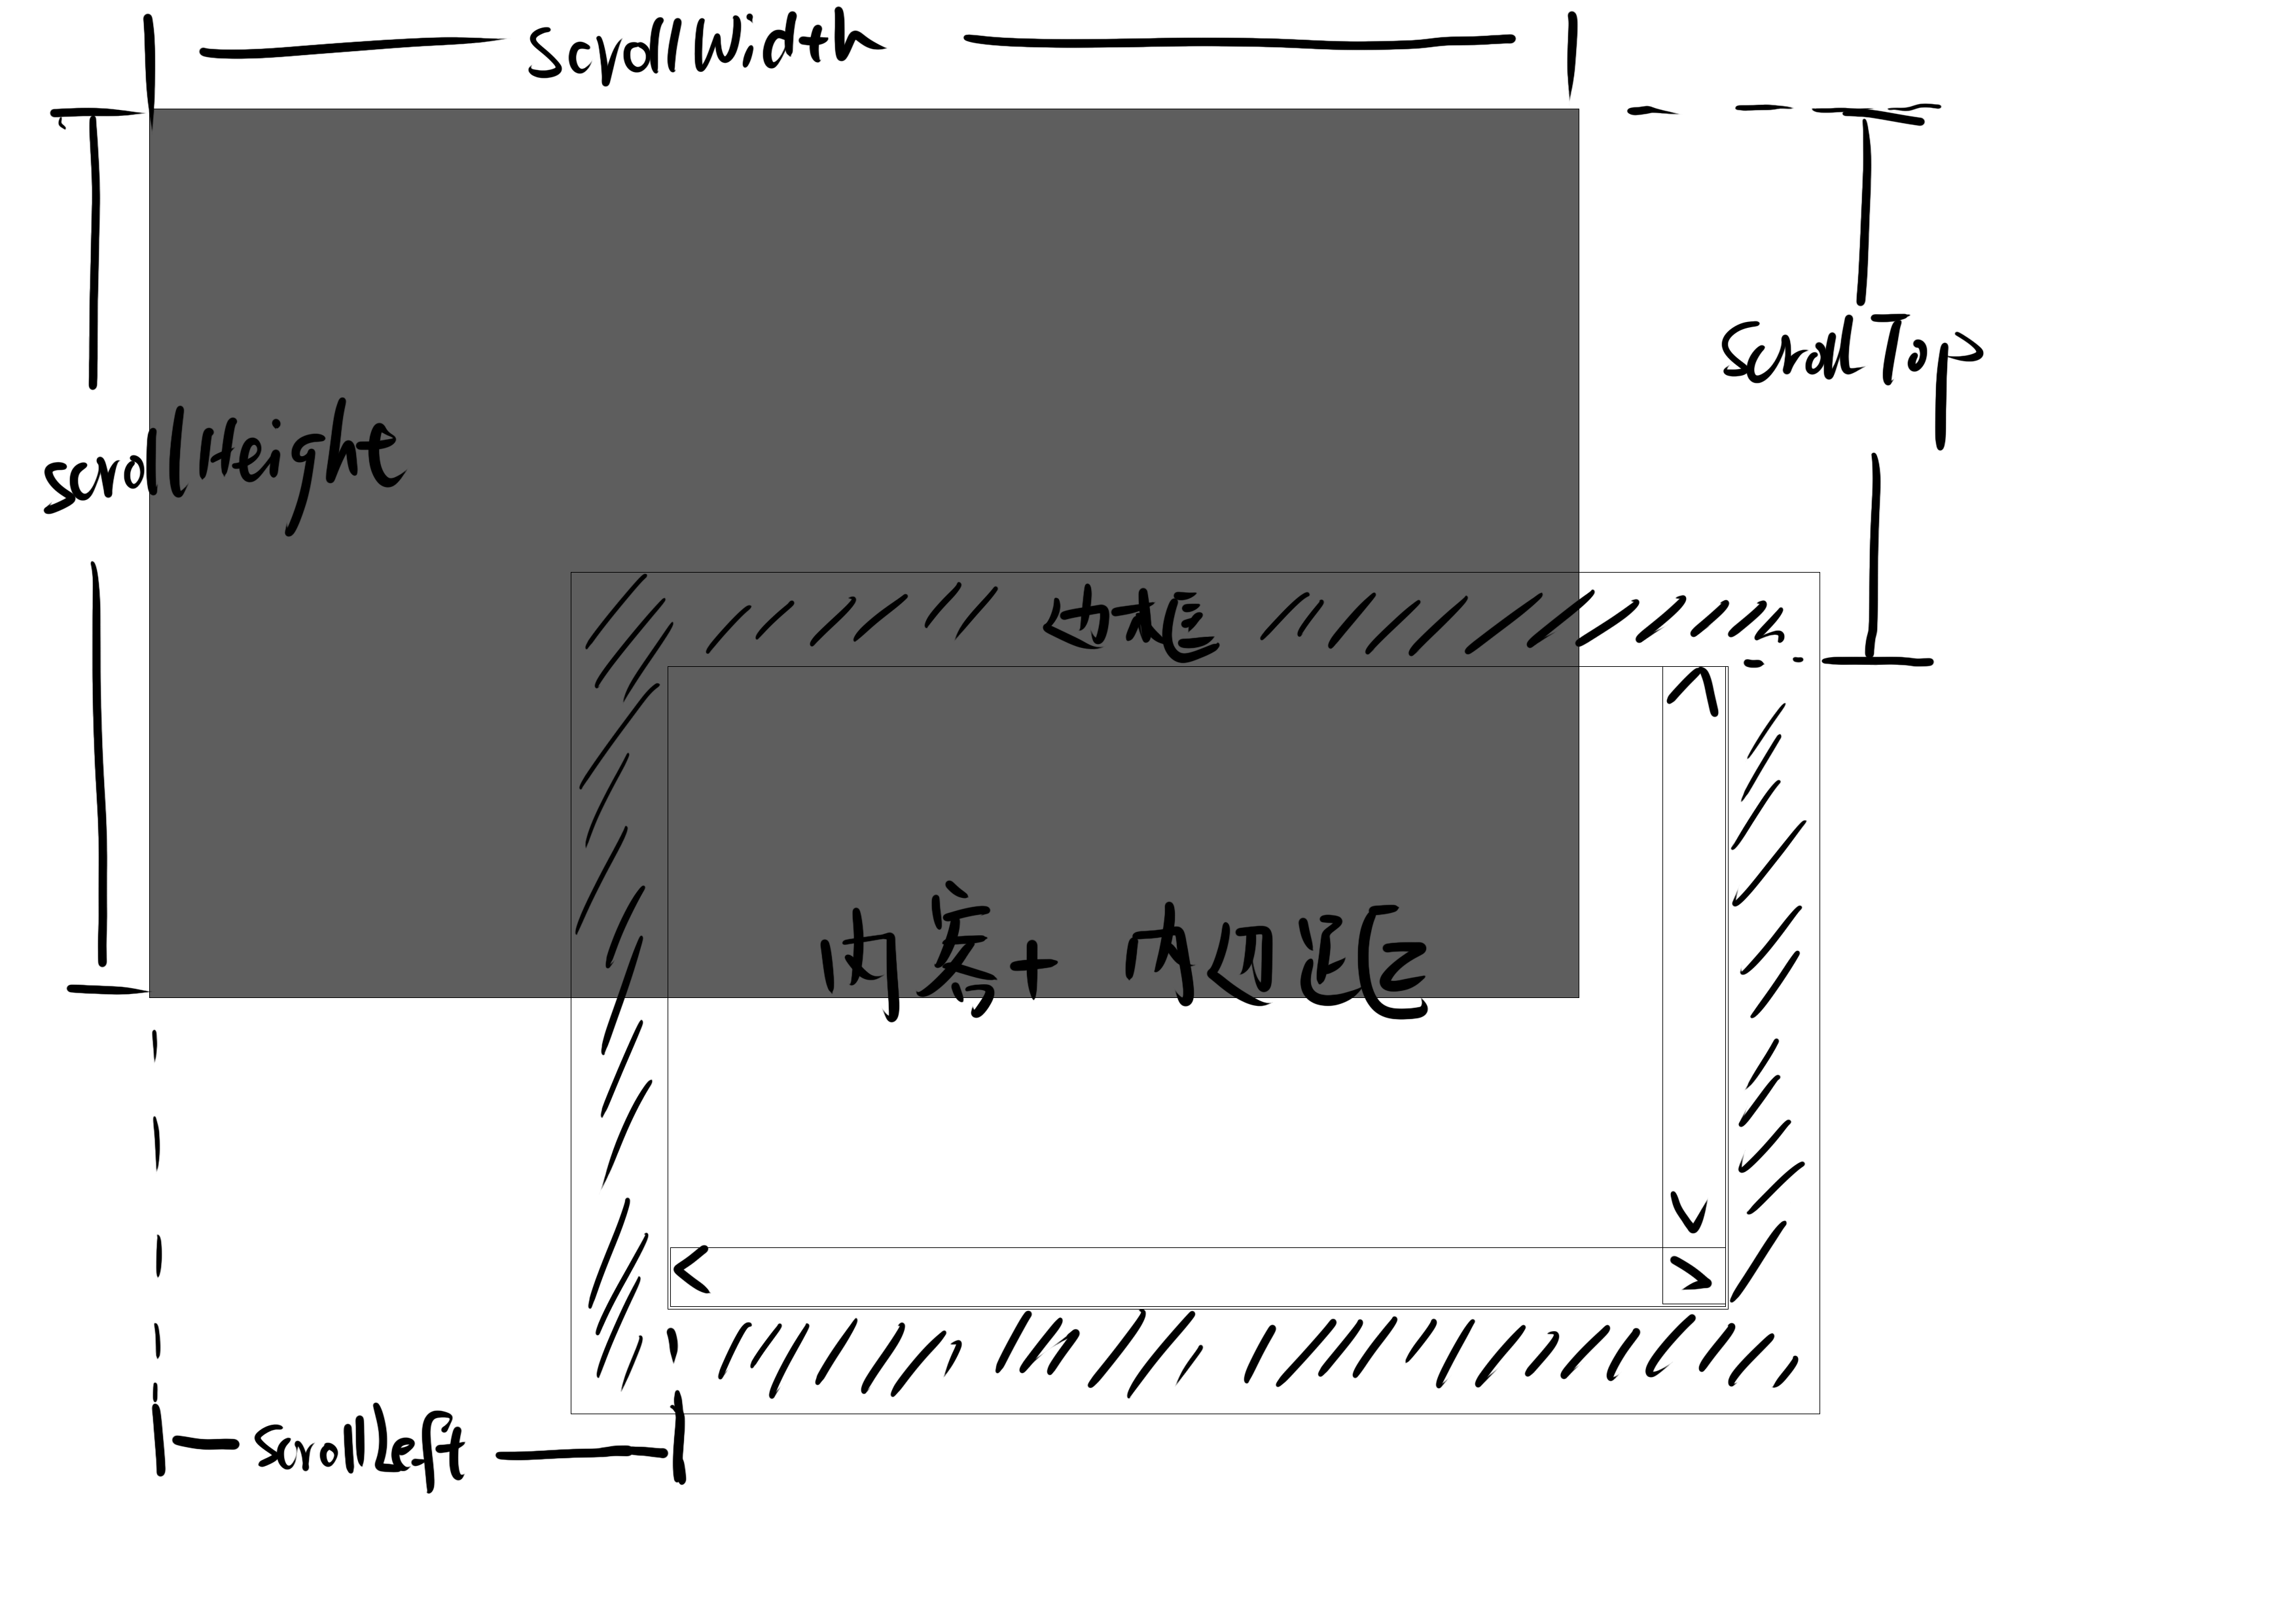 scrollWidth
scrollTop
scrollHeight
边框
内容+ 内边距
scrollLeft